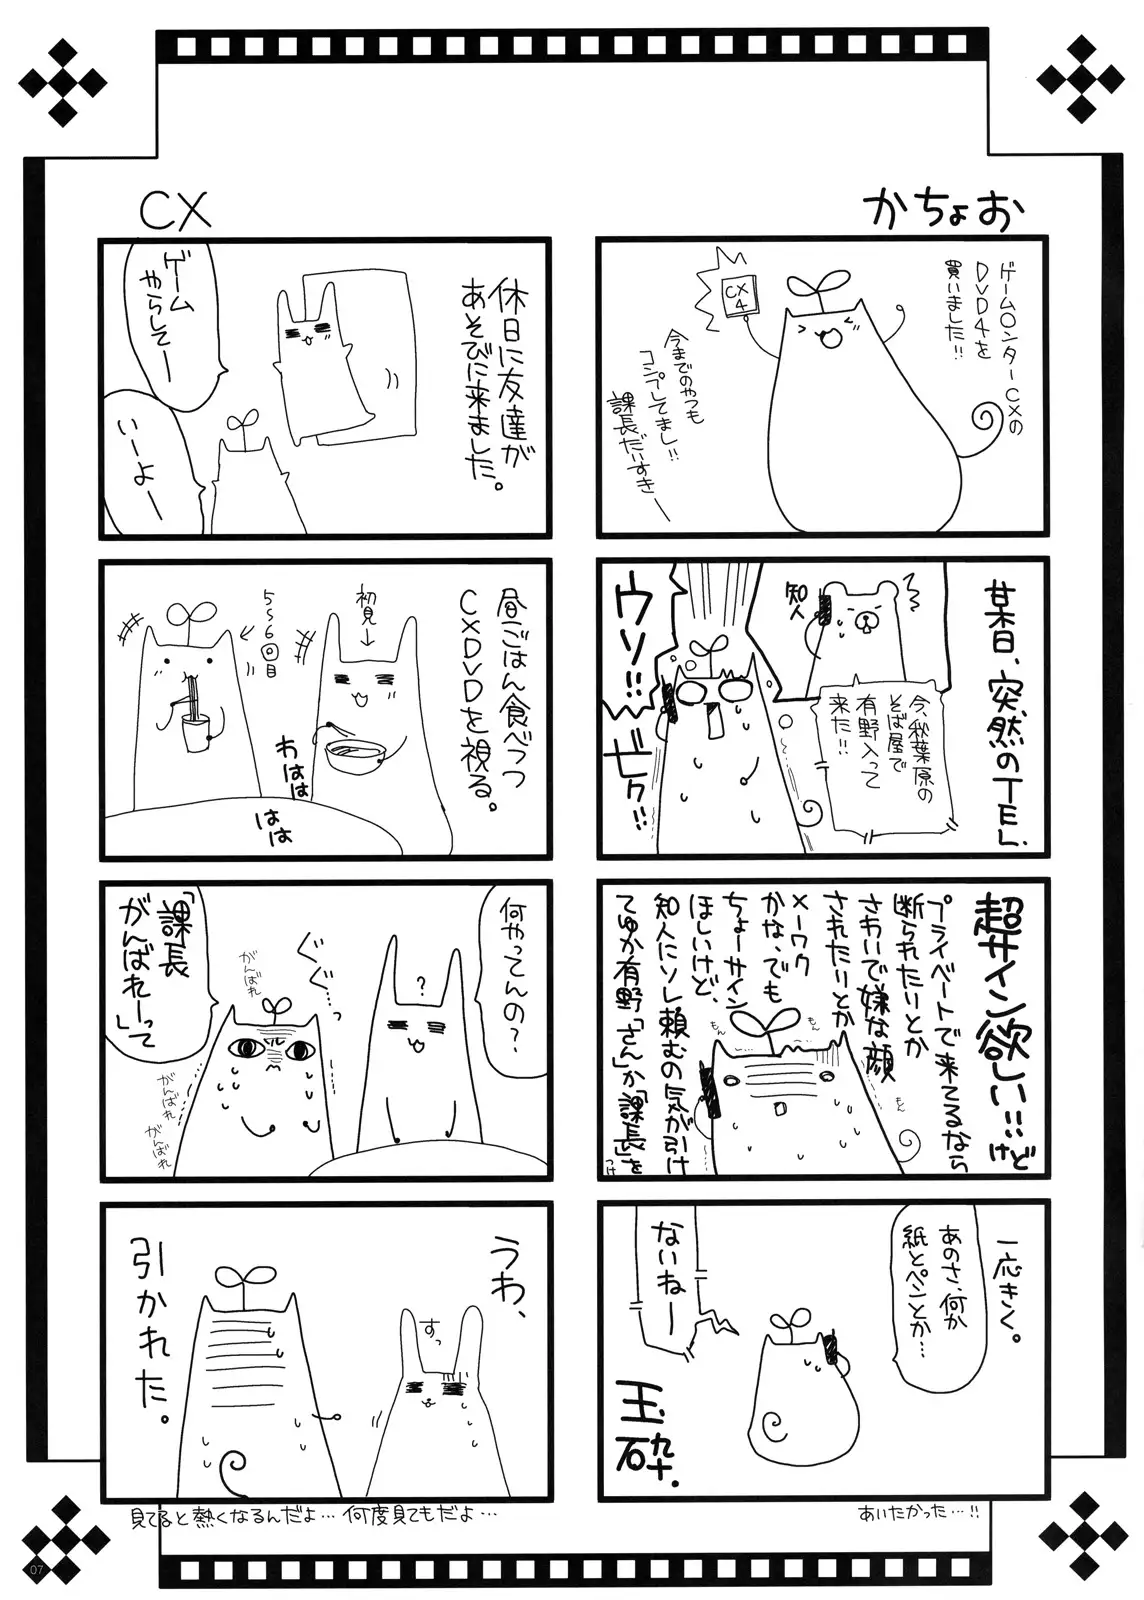 かちょお
ゲーム○ンターCXの
DVD4を
買いました!!
CX
4
今までのやつも
コンプしてまし!!
課長だいすきー
某日、突然のTEL、
知人
今、秋葉原の
そば屋で
有野入って
来た!!
ウソ!!
ビク!!
超サイン欲しい!!けど
プライベートで来てるなら
断られたいとか
さわいで嫌な顔
されたいとか
メーワク
かな、でも
ちょーサイン
ほしいけど、
知人にソレ頼むの気が引け
てゆか有野「さん」か「課長」を
つけ
もん
もん
もん
もん
一応きく。
あのさ、何か
紙とペンとか…
ないねー
玉砕。
あいたかった…!!
CX
休日に友達が
あそびに来ました。
ゲーム
やらしてー
いーよー
昼ごはん食べつつ
CXDVDを視る。
初見
→
5~6回目
わははは
はは
何やってんの?
?
ぐぐ…っ
「課長
がんばれー」って
がんばれ
がんばれ
がんばれ
うわ、
すっ
引かれた。
見てると熱くなるんだよ…何度見てもだよ…
07